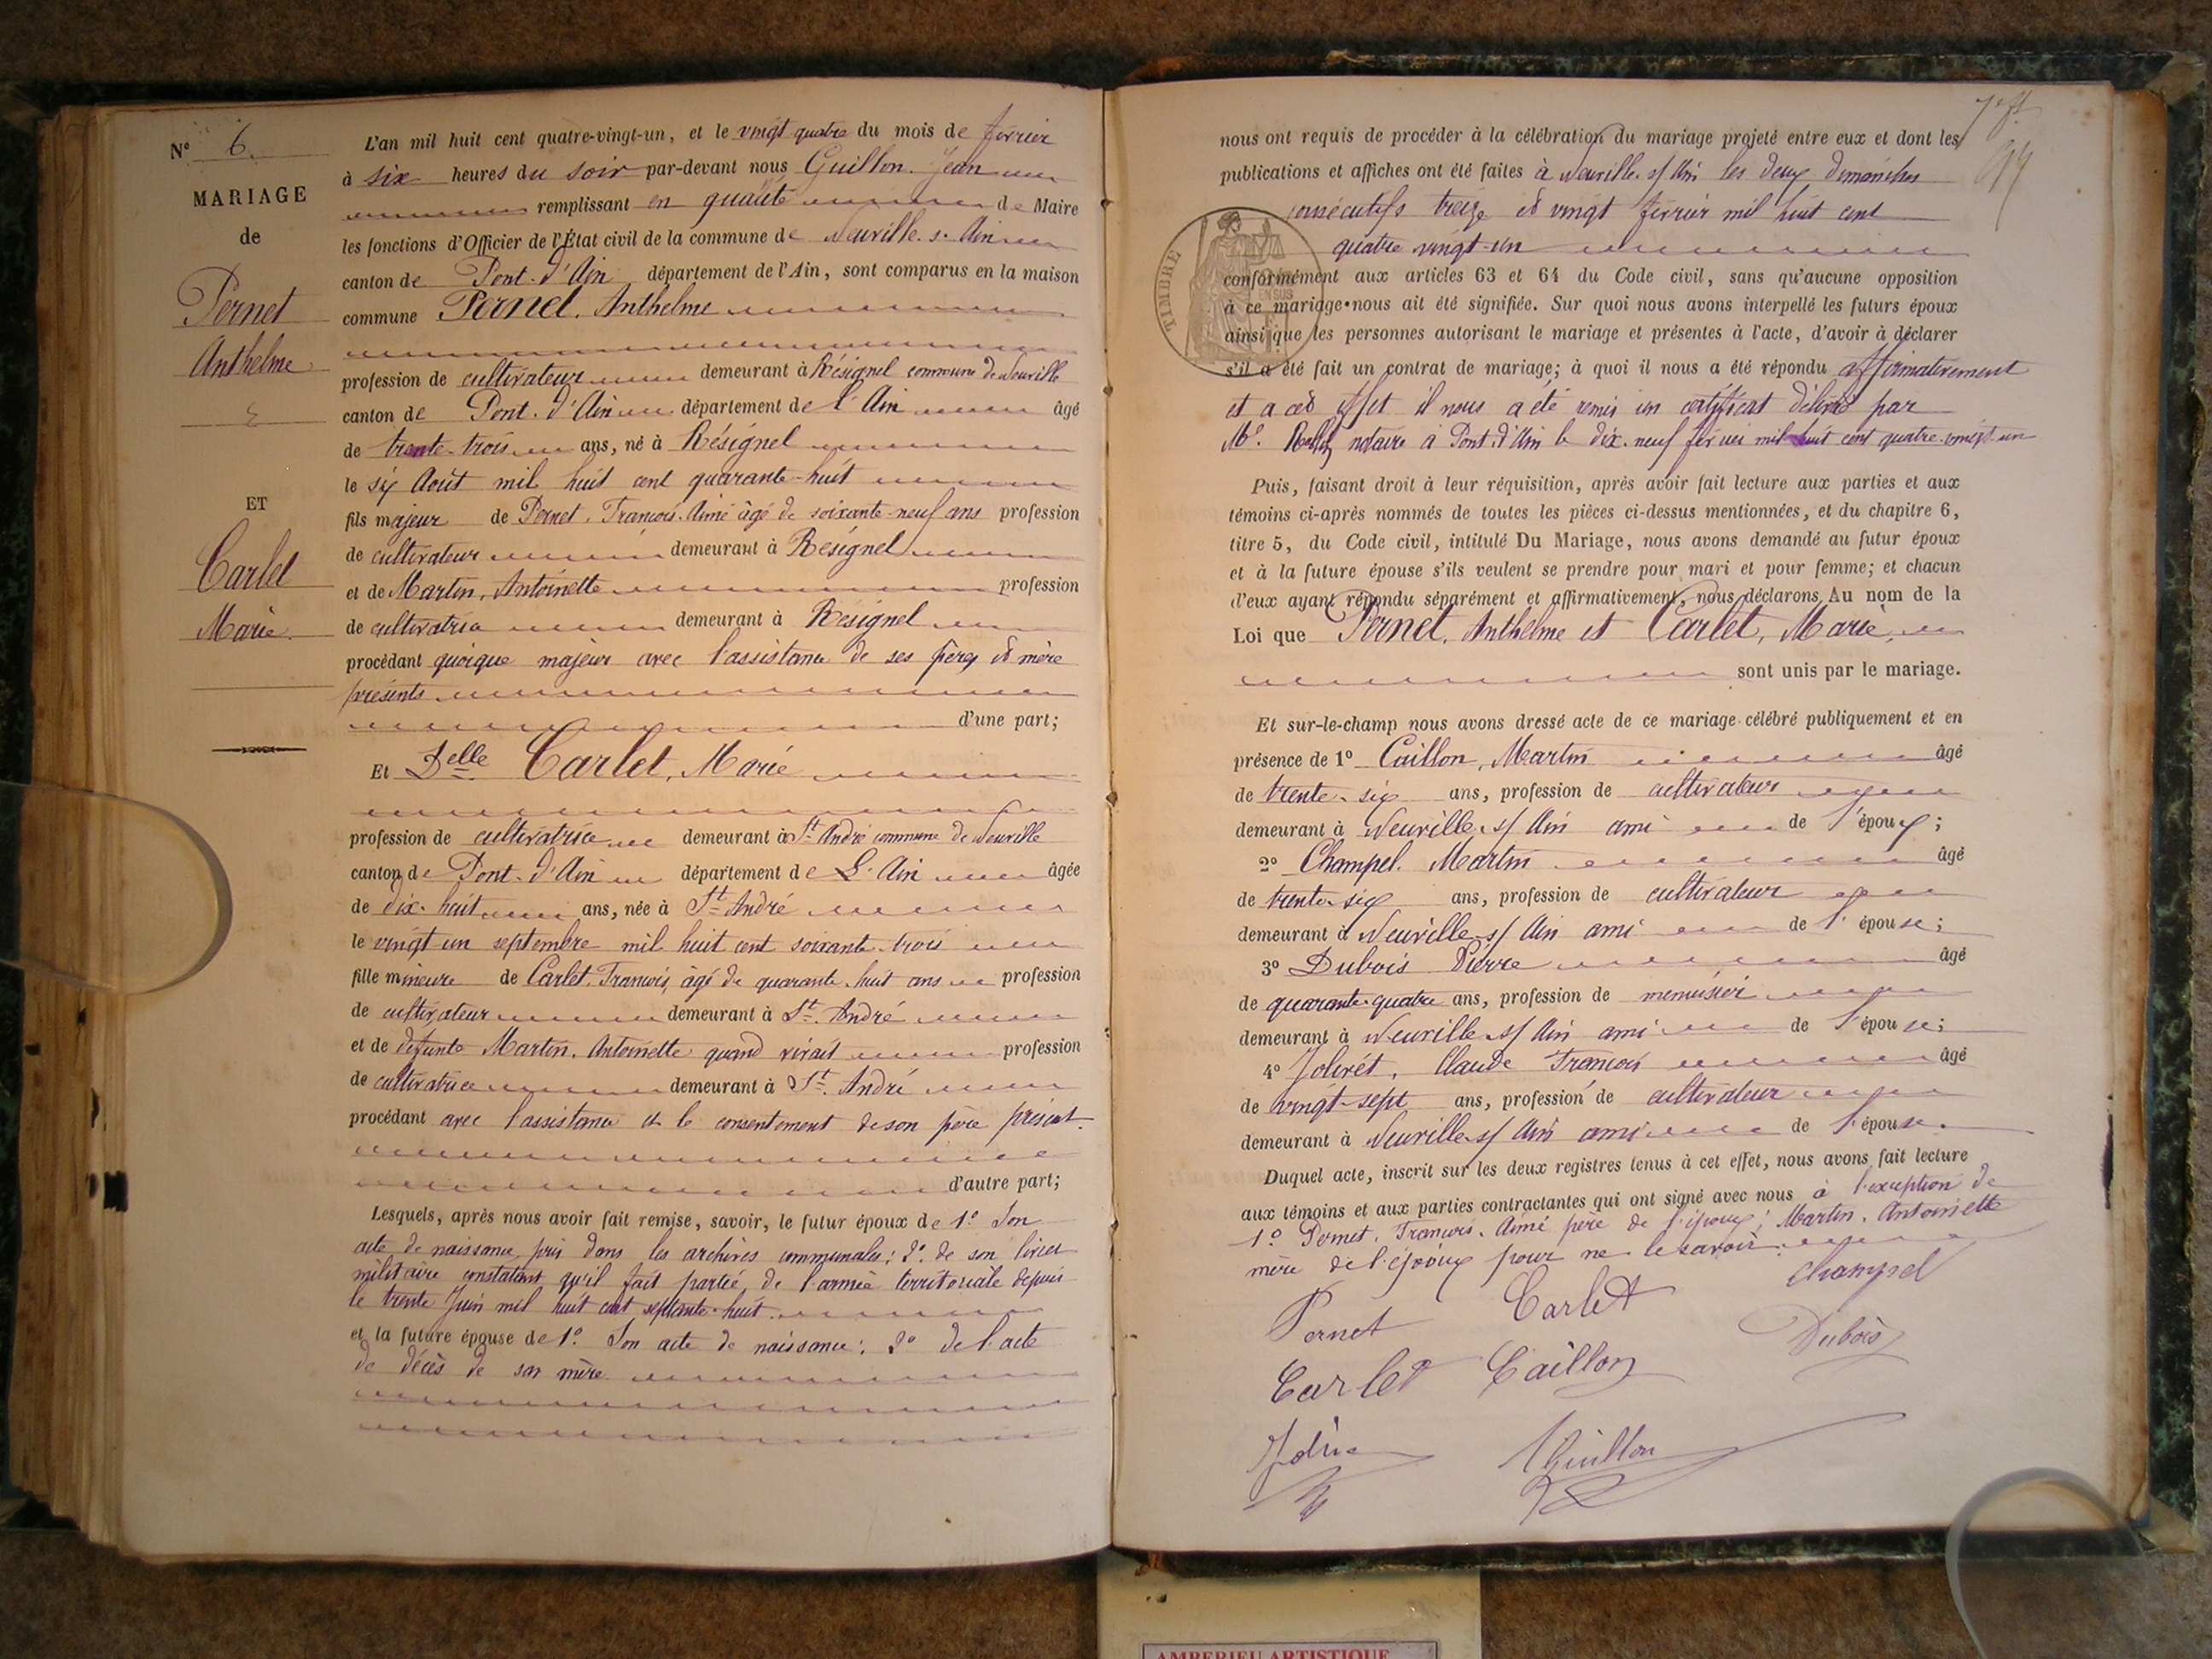 N° 6.
MARIAGE
de
Pernet
Anthelme
ET
Carlet
Marie
L'an mil huit cent quatre-vingt-un, et le vingt quatre du mois de février
à six heures du soir par-devant nous Guillon Jean
remplissant en qualité de Maire
les fonctions d'Officier de l'État civil de la commune de Neuville s. Ain
canton de Pont-d'Ain département de l'Ain, sont comparus en la maison
commune Pernet, Anthelme
profession de cultivateur demeurant à Résignel commune de Neuville
canton de Pont-d'Ain département de l'Ain âgé
de trente-trois ans, né à Résignel
le six Août mil huit cent quarante-huit
fils majeur de Pernet, François-Aimé âgé de soixante-neuf ans profession
de cultivateur demeurant à Résignel
et de Martin, Antoinette profession
de cultivatrice demeurant à Résignel
procédant quoique majeur avec l'assistance de ses père et mère
présents
d'une part;
Et Delle Carlet, Marie
profession de cultivatrice demeurant à St André commune de Neuville
canton de Pont-d'Ain département de L'Ain âgée
de dix-huit ans, née à St André
le vingt un septembre mil huit cent soixante-trois
fille mineure de Carlet, François, âgé de quarante-huit ans profession
de cultivateur demeurant à St André
et de défunte Martin, Antoinette quand vivait profession
de cultivatrice demeurant à St André
procédant avec l'assistance et le consentement de son père présent.
d'autre part;
Lesquels, après nous avoir fait remise, savoir, le futur époux de 1° Son
acte de naissance pris dans les archives communales: 2° de son livret
militaire constatant qu'il fait partie de l'armée territoriale depuis
le trente Juin mil huit cent septante-huit.
et la future épouse de 1° Son acte de naissance: 2° de l'acte
de décès de sa mère
nous ont requis de procéder à la célébration du mariage projeté entre eux et dont les
publications et affiches ont été faites à Neuville s/ Ain les deux dimanches
consécutifs treize et vingt février mil huit cent
quatre vingt-un
TIMBRE
conformément aux articles 63 et 64 du Code civil, sans qu'aucune opposition
à ce mariage nous ait été signifiée. Sur quoi nous avons interpellé les futurs époux
ainsi que les personnes autorisant le mariage et présentes à l'acte, d'avoir à déclarer
s'il a été fait un contrat de mariage; à quoi il nous a été répondu affirmativement
et a cet effet il nous a été remis un certificat délivré par
Me. notaire à Pont d'Ain le dix-neuf février mil huit cent quatre-vingt-un
Puis, faisant droit à leur réquisition, après avoir fait lecture aux parties et aux
témoins ci-après nommés de toutes les pièces ci-dessus mentionnées, et du chapitre 6,
titre 5, du Code civil, intitulé Du Mariage, nous avons demandé au futur époux
et à la future épouse s'ils veulent se prendre pour mari et pour femme; et chacun
d'eux ayant répondu séparément et affirmativement, nous déclarons, Au nom de la
Loi que Pernet, Anthelme et Carlet, Marie,
sont unis par le mariage.
Et sur-le-champ nous avons dressé acte de ce mariage célébré publiquement et en
présence de 1° Caillon, Martin âgé
de trente-six ans, profession de cultivateur
demeurant à Neuville s/ Ain ami de l'époux;
2° Champel, Martin âgé
de trente-six ans, profession de cultivateur
demeurant à Neuville s/ Ain ami de l'épouse;
3° Dubois Pierre âgé
de quarante-quatre ans, profession de menuisier
demeurant à Neuville s/ Ain ami de l'épouse;
4° Jolivet, Claude François âgé
de vingt-sept ans, profession de cultivateur
demeurant à Neuville s/ Ain ami de l'épouse.
Duquel acte, inscrit sur les deux registres tenus à cet effet, nous avons fait lecture
aux témoins et aux parties contractantes qui ont signé avec nous à l'exception de
1° Pernet, François-Aimé père de l'époux; Martin, Antoinette
mère de l'époux pour ne le savoir.
Pernet Carlet Champel
Carlet Caillon Dubois
Guillon
AMBERIEU ARTISTIQUE